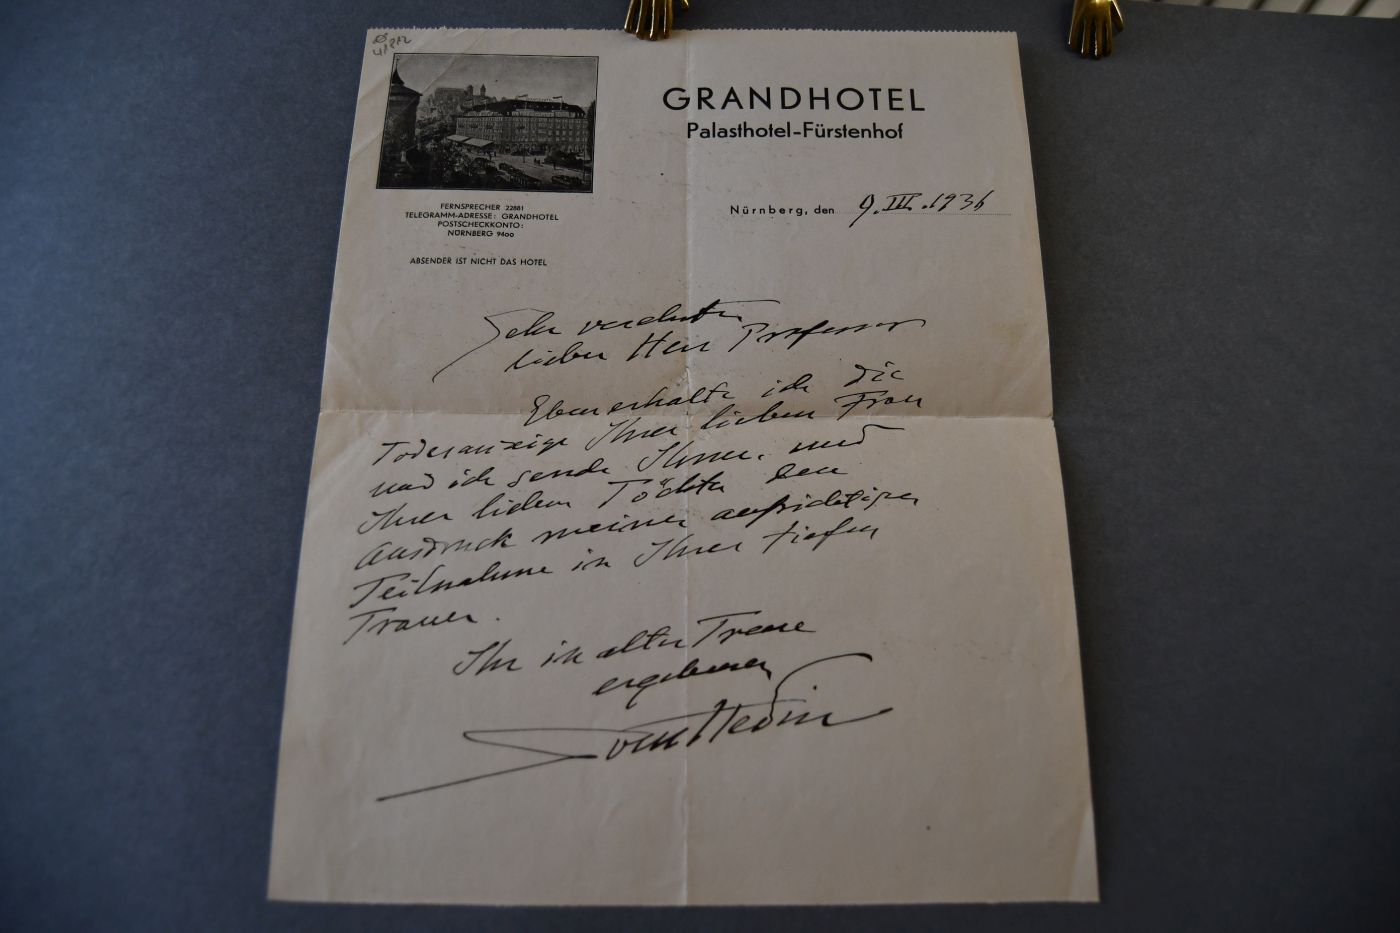 GRANDHOTEL
Palasthotel-Fürstenhof
FERNSPRECHER 22881
TELEGRAMM-ADRESSE: GRANDHOTEL
POSTSCHECKKONTO:
NÜRNBERG 9400
ABSENDER IST NICHT DAS HOTEL
Nürnberg, den 9. III. 1936
Sehr verehrter
lieber Herr Professor
Eben erhalte ich die
Todesanzeige Ihrer lieben Frau
und ich sende Ihnen und
Ihren lieben Töchter den
Ausdruck meiner aufrichtigen
Teilnahme in Ihrer tiefen
Trauer.
Ihr in alter Treue
ergebener
Sven Hedin